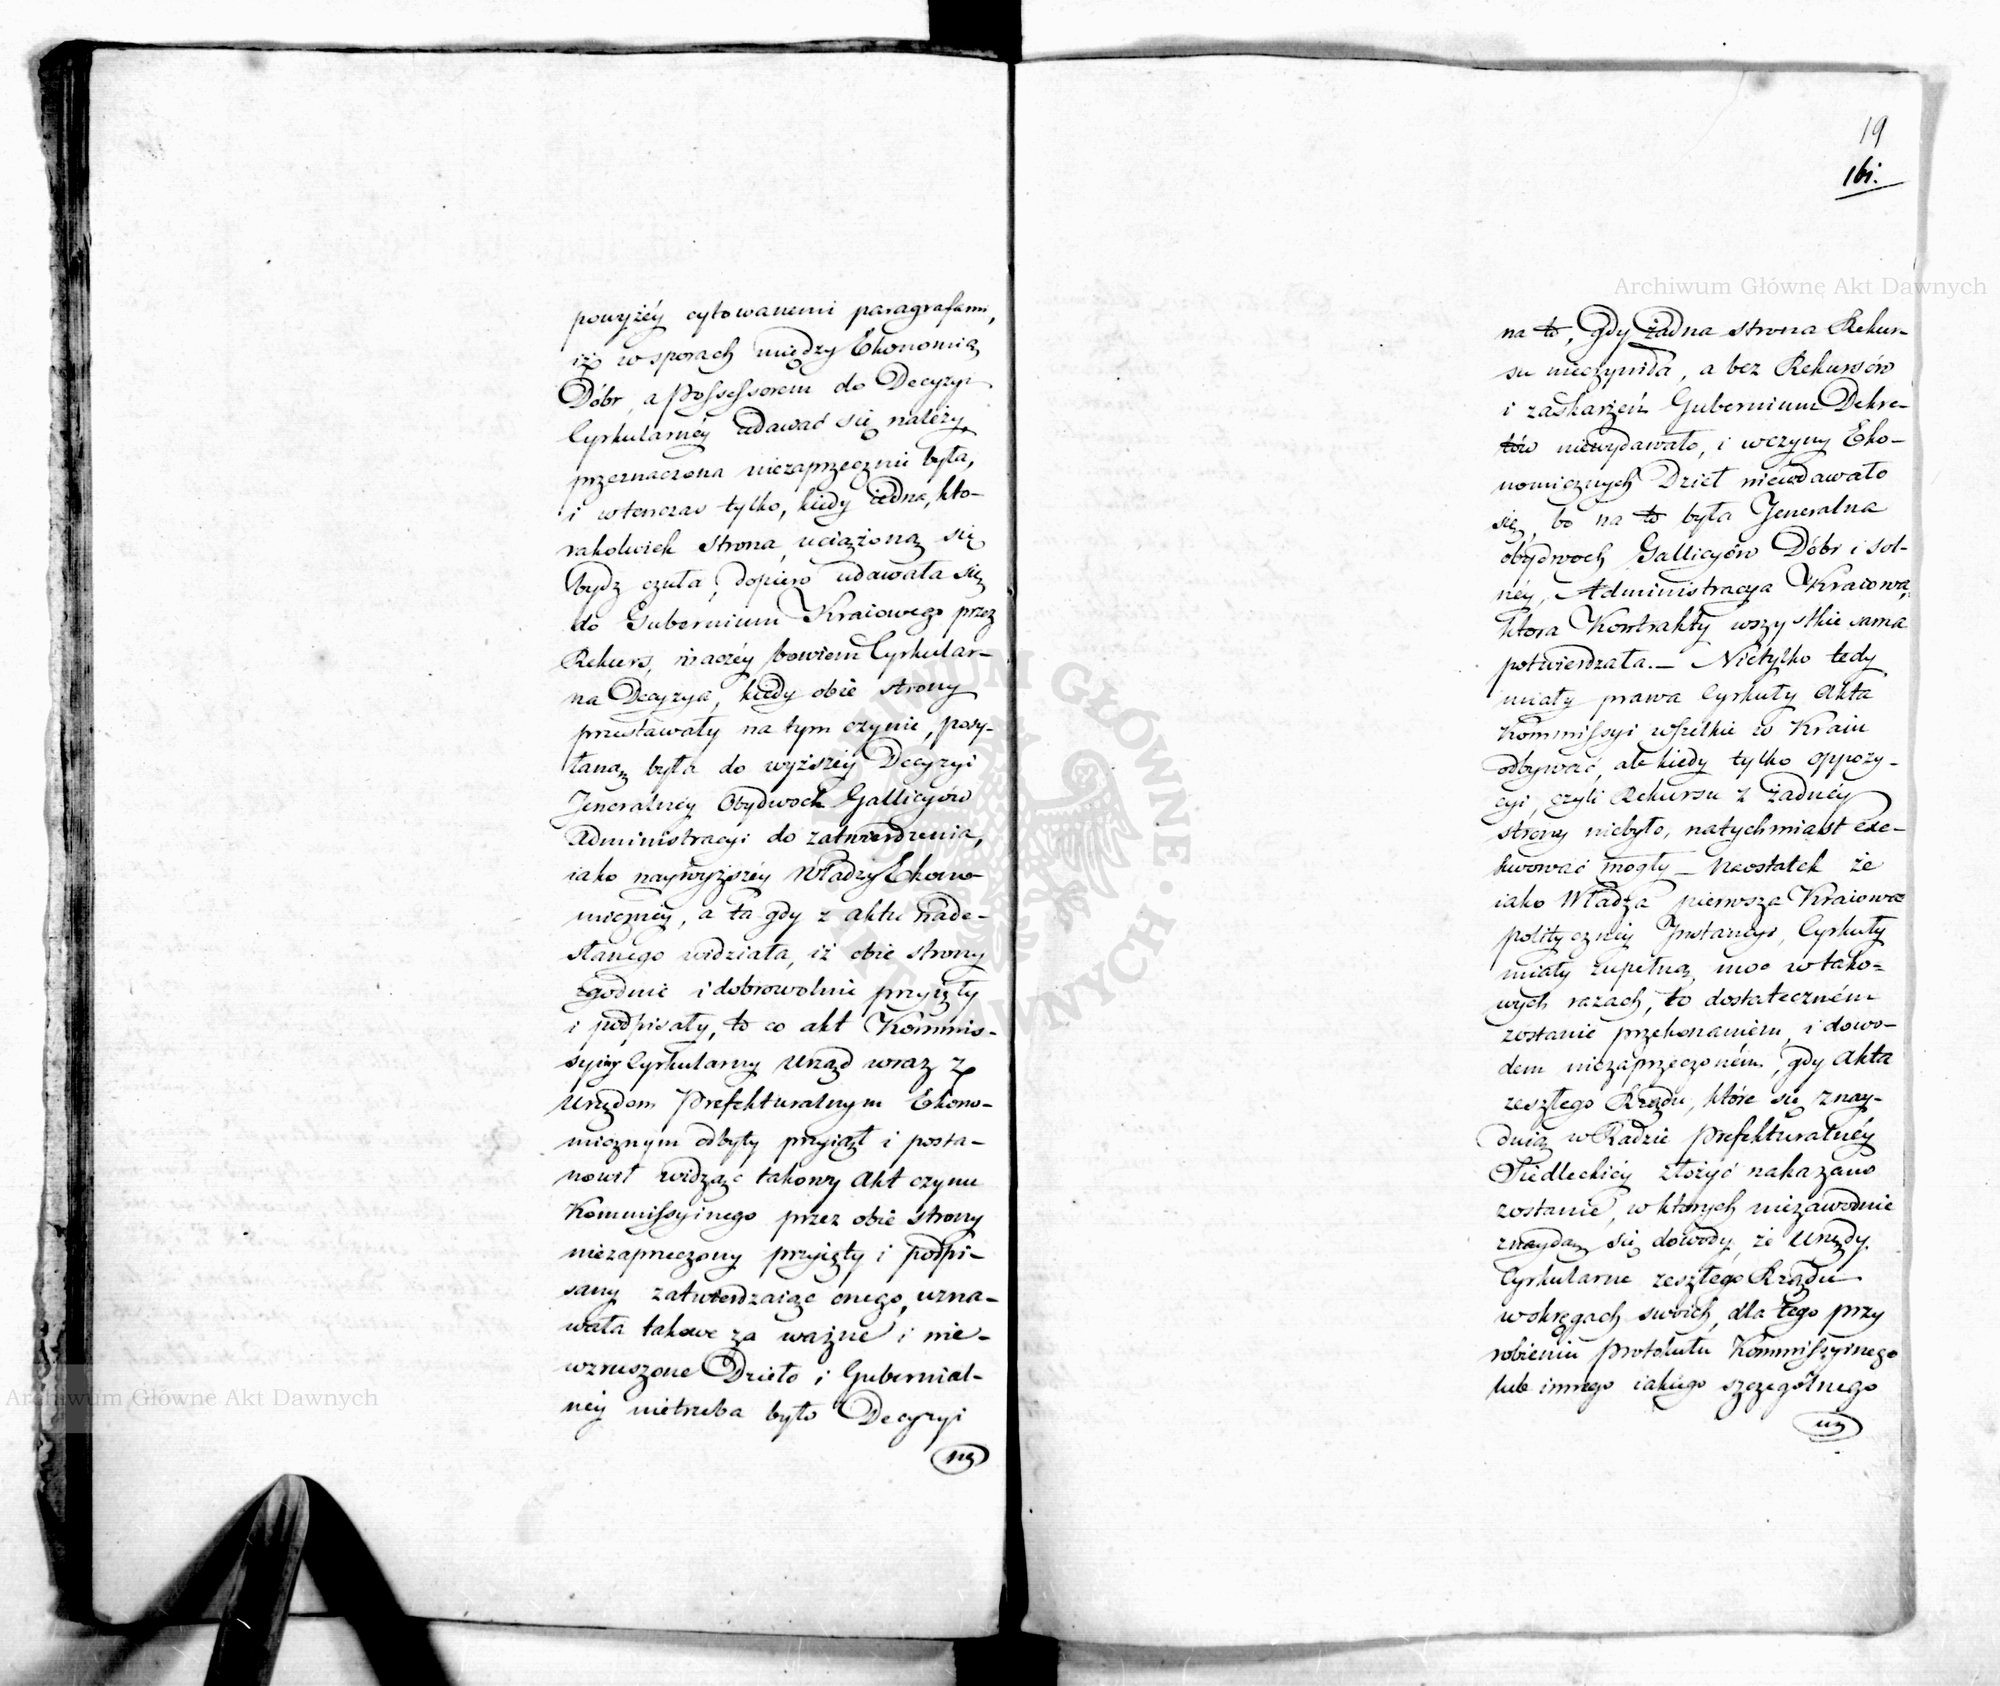 powyżéy cytowanemi paragrafami,
iż w sporach między Ekonomią
Dóbr, a Possessorem do Decyzyi
Cyrkularnéy udawać się należy,
przeznaczona niezaprzecznie była,
i wtenczas tylko, kiedy iedna, któ-
rakolwiek strona, uciążoną się
bydz czuła, dopiero udawała się
do Gubernium Kraiowego przez
Rekurs, inaczéy bowiem Cyrkular-
na Decyzya, kiedy obie strony
przestawały na tym czynie, posy-
łaną była do wyższéy Decyzyi
Jeneralnéy Obydwoch Gallicyów
Administracyi do zatwierdzenia,
iako naywyższéy Władzy Ekono-
miczney, a ta gdy z aktu nade-
słanego widziała, iż obie strony
zgodnie i dobrowolnie przyięły
i podpisały, to co akt Kommis-
syiny Cyrkularny Urząd wraz z
Urzędem Prefekturalnym Ekono-
micznym odbyty przyiął i posta-
nowił widząc takowy Akt czynu
Kommissyinego przez obie strony
niezaprzeczony przyięty i podpi-
sany zatwierdzaiąc onego, uzna-
wała takowe za ważne i nie-
wzruszone Dzieło i Gubernial-
néy nietrzeba było Decyzyi
na
19
161.
na to, gdy żadna strona Rekur-
su nieczyniła, a bez Rekursów
i zaskarżeń Gubernium Dekre-
tów niewydawało, i wczyny Eko-
nomicznych Dzieł niewdawało
się, bo na to była Jeneralna
obydwoch Gallicyów Dóbr i sol-
néy, Administracya Kraiowa,
która Kontrakty wszystkie sama
potwierdzała. – Nietylko tedy
miały prawa Cyrkuły Akta
Kommissyi wszelkie w Kraiu
odbywać, ale kiedy tylko oppozy-
cyi, czyli Rekursu z żadnéy
strony niebyło, natychmiast exe-
kwować mogły – Naostatek że
iako Władza pierwsza Kraiowa
polityczney Instancyi, Cyrkuły
miały zupełną moc w tako-
wych razach, to dostateczném
zostanie przekonaniem, i dowo-
dem niezaprzeczoném, gdy Akta
zeszłego Rządu, które się znay-
duią w Radzie Prefekturalnéy
Siedleckiéy złożyć nakazano
zostanie, w których niezawodnie
znaydą się dowody, że Urzędy
Cyrkularne zeszłego Rządu
w okręgach swoich, dla tego przy
robieniu Protokułu Kommissyinego
lub innego iakiego szczególnego
Archiwum Główne Akt Dawnych
Archiwum Główne Akt Dawnych